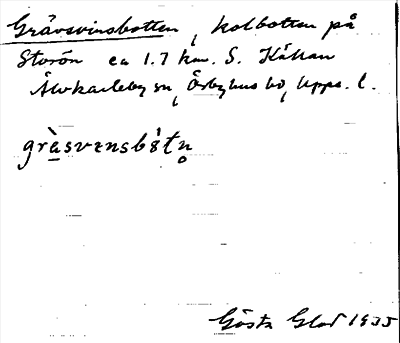 Grävsvinsbotten, kolbotten på
Storön ca 1.7 km. S. Kåhan
Älvkarleby sn, Örbyhus hd, Upps. l.
gràsvɪnsbòtn̥
Gösta Glad 1935